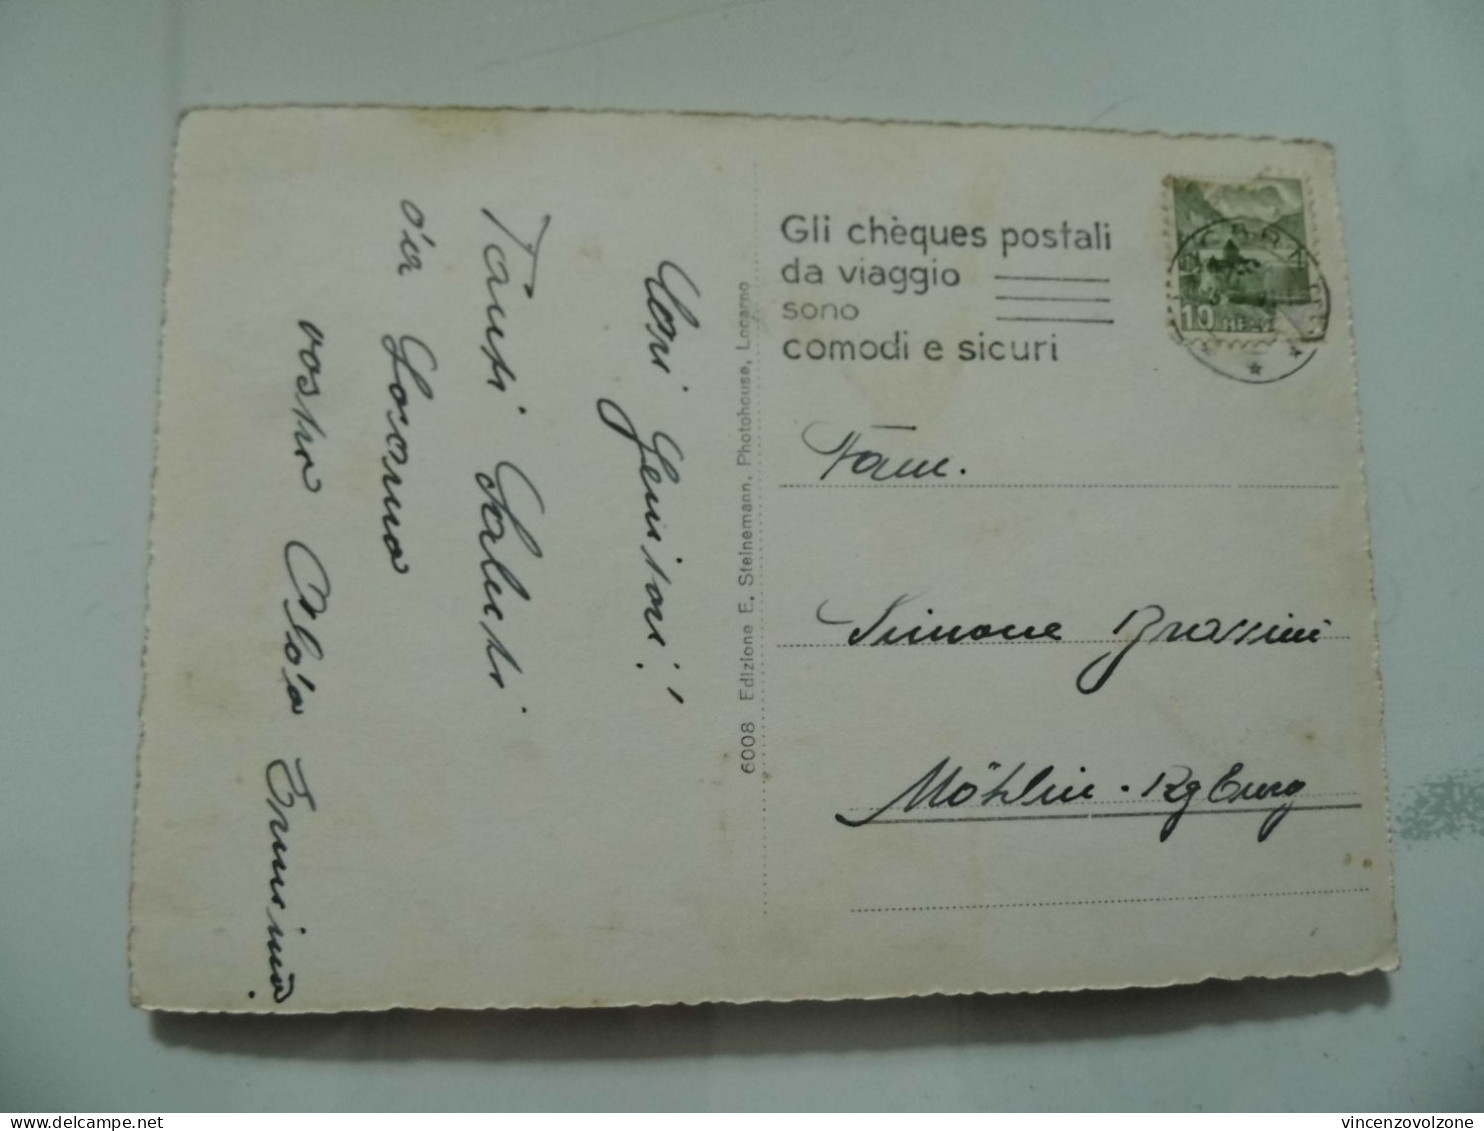 Cari Genitori!
Tanti Saluti
da Locarno
vostro Aldo Erminia
6008 Edizione E. Steinemann, Photohouse, Locarno
Gli chèques postali
da viaggio
sono
comodi e sicuri
10
Fam.
Simone Brassini
Möhlin - Rgburg
vincenzovolzone